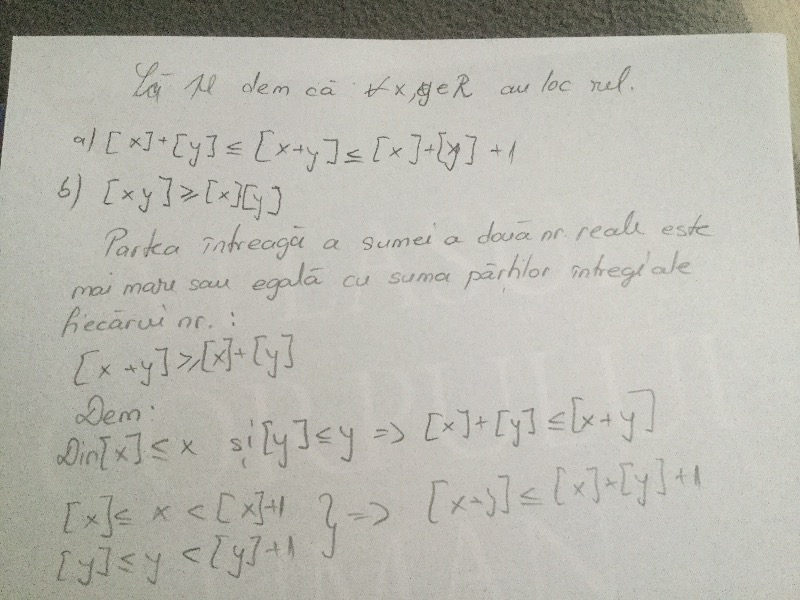 Să se dem că ∀ x,y∈R au loc rel.
a) [x]+[y] ≤ [x+y] ≤ [x]+[y] +1
b) [xy] ≥ [x][y]
Partea întreagă a sumei a două nr. reale este
mai mare sau egală cu suma părților întregi ale
fiecărui nr. :
[x+y] ≥ [x]+[y]
Dem:
Din [x] ≤ x și [y] ≤ y => [x]+[y] ≤ [x+y]
[x] ≤ x < [x]+1 } => [x+y] ≤ [x]+[y]+1
[y] ≤ y < [y]+1